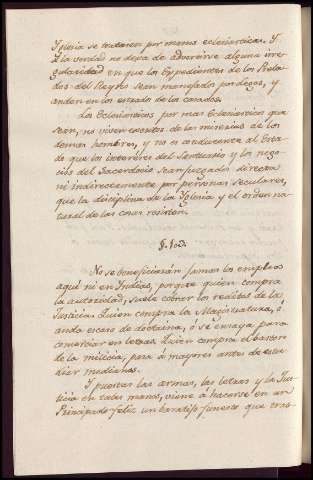 Iglesia se trataren por manos eclesiasticas. Y
a la verdad no dexa de advertirse alguna irre-
gularidad en que los Expedientes de los Prela-
dos del Reyno sean manejados por legos, y
anden en los estrados de los casados.
Los Eclesiasticos por mas Eclesiasticos que
sean, no viven esentos de las miserias de los
demas hombres, y no es conducente al Esta-
do que los intereses del Santuario y los nego-
cios del Sacerdocio sean juzgados directa
ni indirectamente por personas seculares,
que la disciplina de la Iglesia y el orden na-
tural de las cosas resisten.
§. 103.
No se beneficiarán jamas los empleos
aqui ni en Indias, porque quien compra
la autoridad, suele cobrar los reditos de la
Justicia. Quien compra la Magistratura, ó
anda escaso de doctrina, ó se ensaya para
comerciar en letras. Quien compra el baston
de la milicia, pasa á mayores antes de estu-
diar medianos.
Y puestas las armas, las letras y la Jus-
ticia en tales manos, viene á hacerse en un
Principado feliz un baratillo funesto que tras-